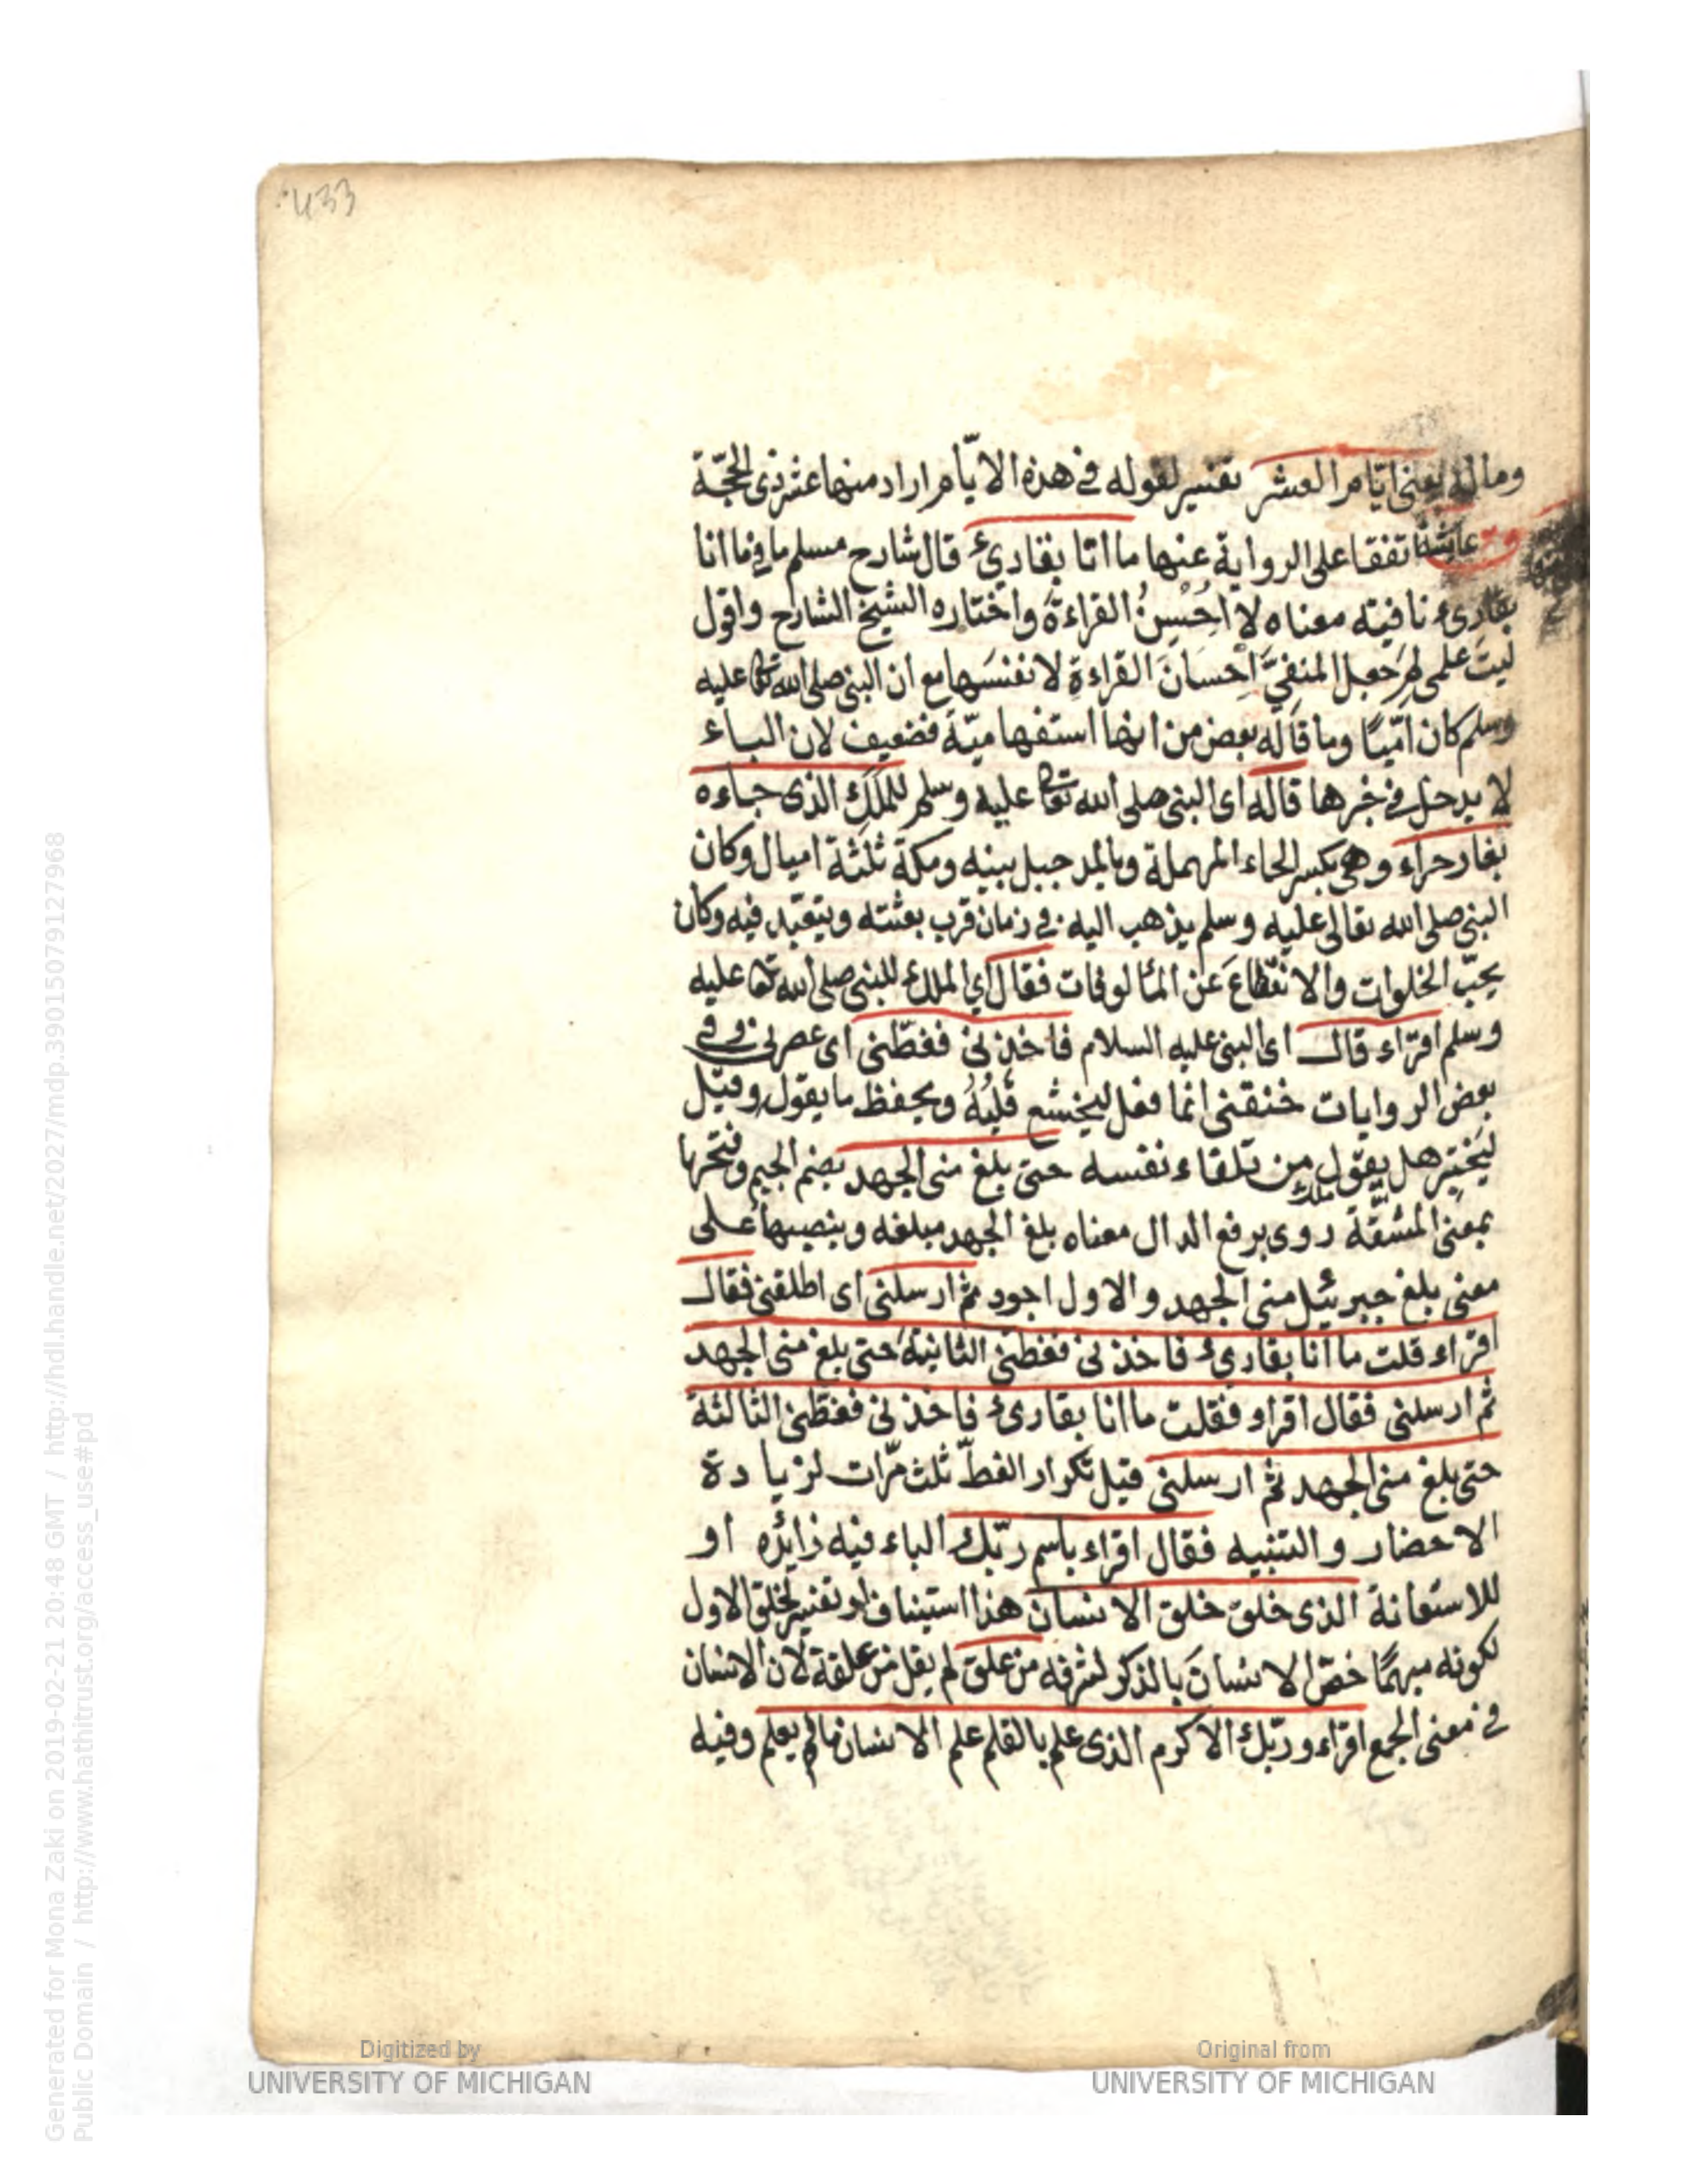 433
وماله يعنى ايّام العشر تفسير لقوله فى هذه الايّام اراد منها عشر ذى الحجّة
ق عايشة اتفقا على الرواية عنها ما انا بقارئ قال شارح مسلم ما فى ما انا
بقارئ نافية معناه لا اُحْسِنُ القراءةَ واختاره الشيخ الشارح واقول
ليتَ علمى لِمَ جعل المنفىَّ اِحسانَ القراءة لا نفسَها مع ان النبى صلى الله تعا عليه
وسلم كان امّيّا وما قاله بعض من انها استفهاميّة فضعيف لان الباء
لا يدخل فى خبرها قاله اى النبى صلى الله تعا عليه وسلم للمَلَكِ الذى جاءه
بغار حراء وهى بكسر الحاء المهملة وبالمد جبل بينه ومكة ثلثة اميال وكان
النبى صلى الله تعالى عليه وسلم يذهب اليه فى زمان قرب بعثته ويتعبّد فيه وكان
يحبّ الخلوات والانقطاعَ عن المألوفات فقال اى الملك للنبى صلى الله تعا عليه
وسلم اقراء قال اى النبى عليه السلام فاخذنى فغطّنى اى عصرنى وفى
بعض الروايات خنقنى انما فعل ليخشع قلبُهُ ويحفظ ما يقول وقيل
ليَخْتبِر هل يقول من تلقاء نفسه حتى بلغ منى الجهد بضم الجيم وفتحها
بمعنى المشقّة روى برفع الدال معناه بلغ الجهد مبلغه وينصبها على
معنى بلغ جبرئيل منى الجهد والاول اجود ثم ارسلنى اى اطلقنى فقال
اقراء قلت ما انا بقارئ فاخذنى فغطنى الثانية حتى بلغ منى الجهد
ثم ارسلنى فقال اقراء فقلت ما انا بقارئ فاخذنى فغطّنى الثالثة
حتى بلغ منى الجهد ثم ارسلنى قيل تكرار الغطّ ثلث مرّات لزيادة
الاحضار والتنبيه فقال اقراء باسم ربّك الباء فيه زائده او
للاستعانة الذى خلق خلق الانسان هذا استيناف او تفسير لخلق الاول
لكونه مبهمًا خصّ الانسانَ بالذكر لشرفه من علق لم يقل من علقة لان الانسان
فى معنى الجمع اقراء وربّك الاكرم الذى علم بالقلم علم الانسان مالم يعلم وفيه
Digitized by
UNIVERSITY OF MICHIGAN
Original from
UNIVERSITY OF MICHIGAN
Generated for Mona Zaki on 2019-02-21 20:48 GMT / http://hdl.handle.net/2027/mdp.39015079127968
Public Domain / http://www.hathitrust.org/access_use#pd